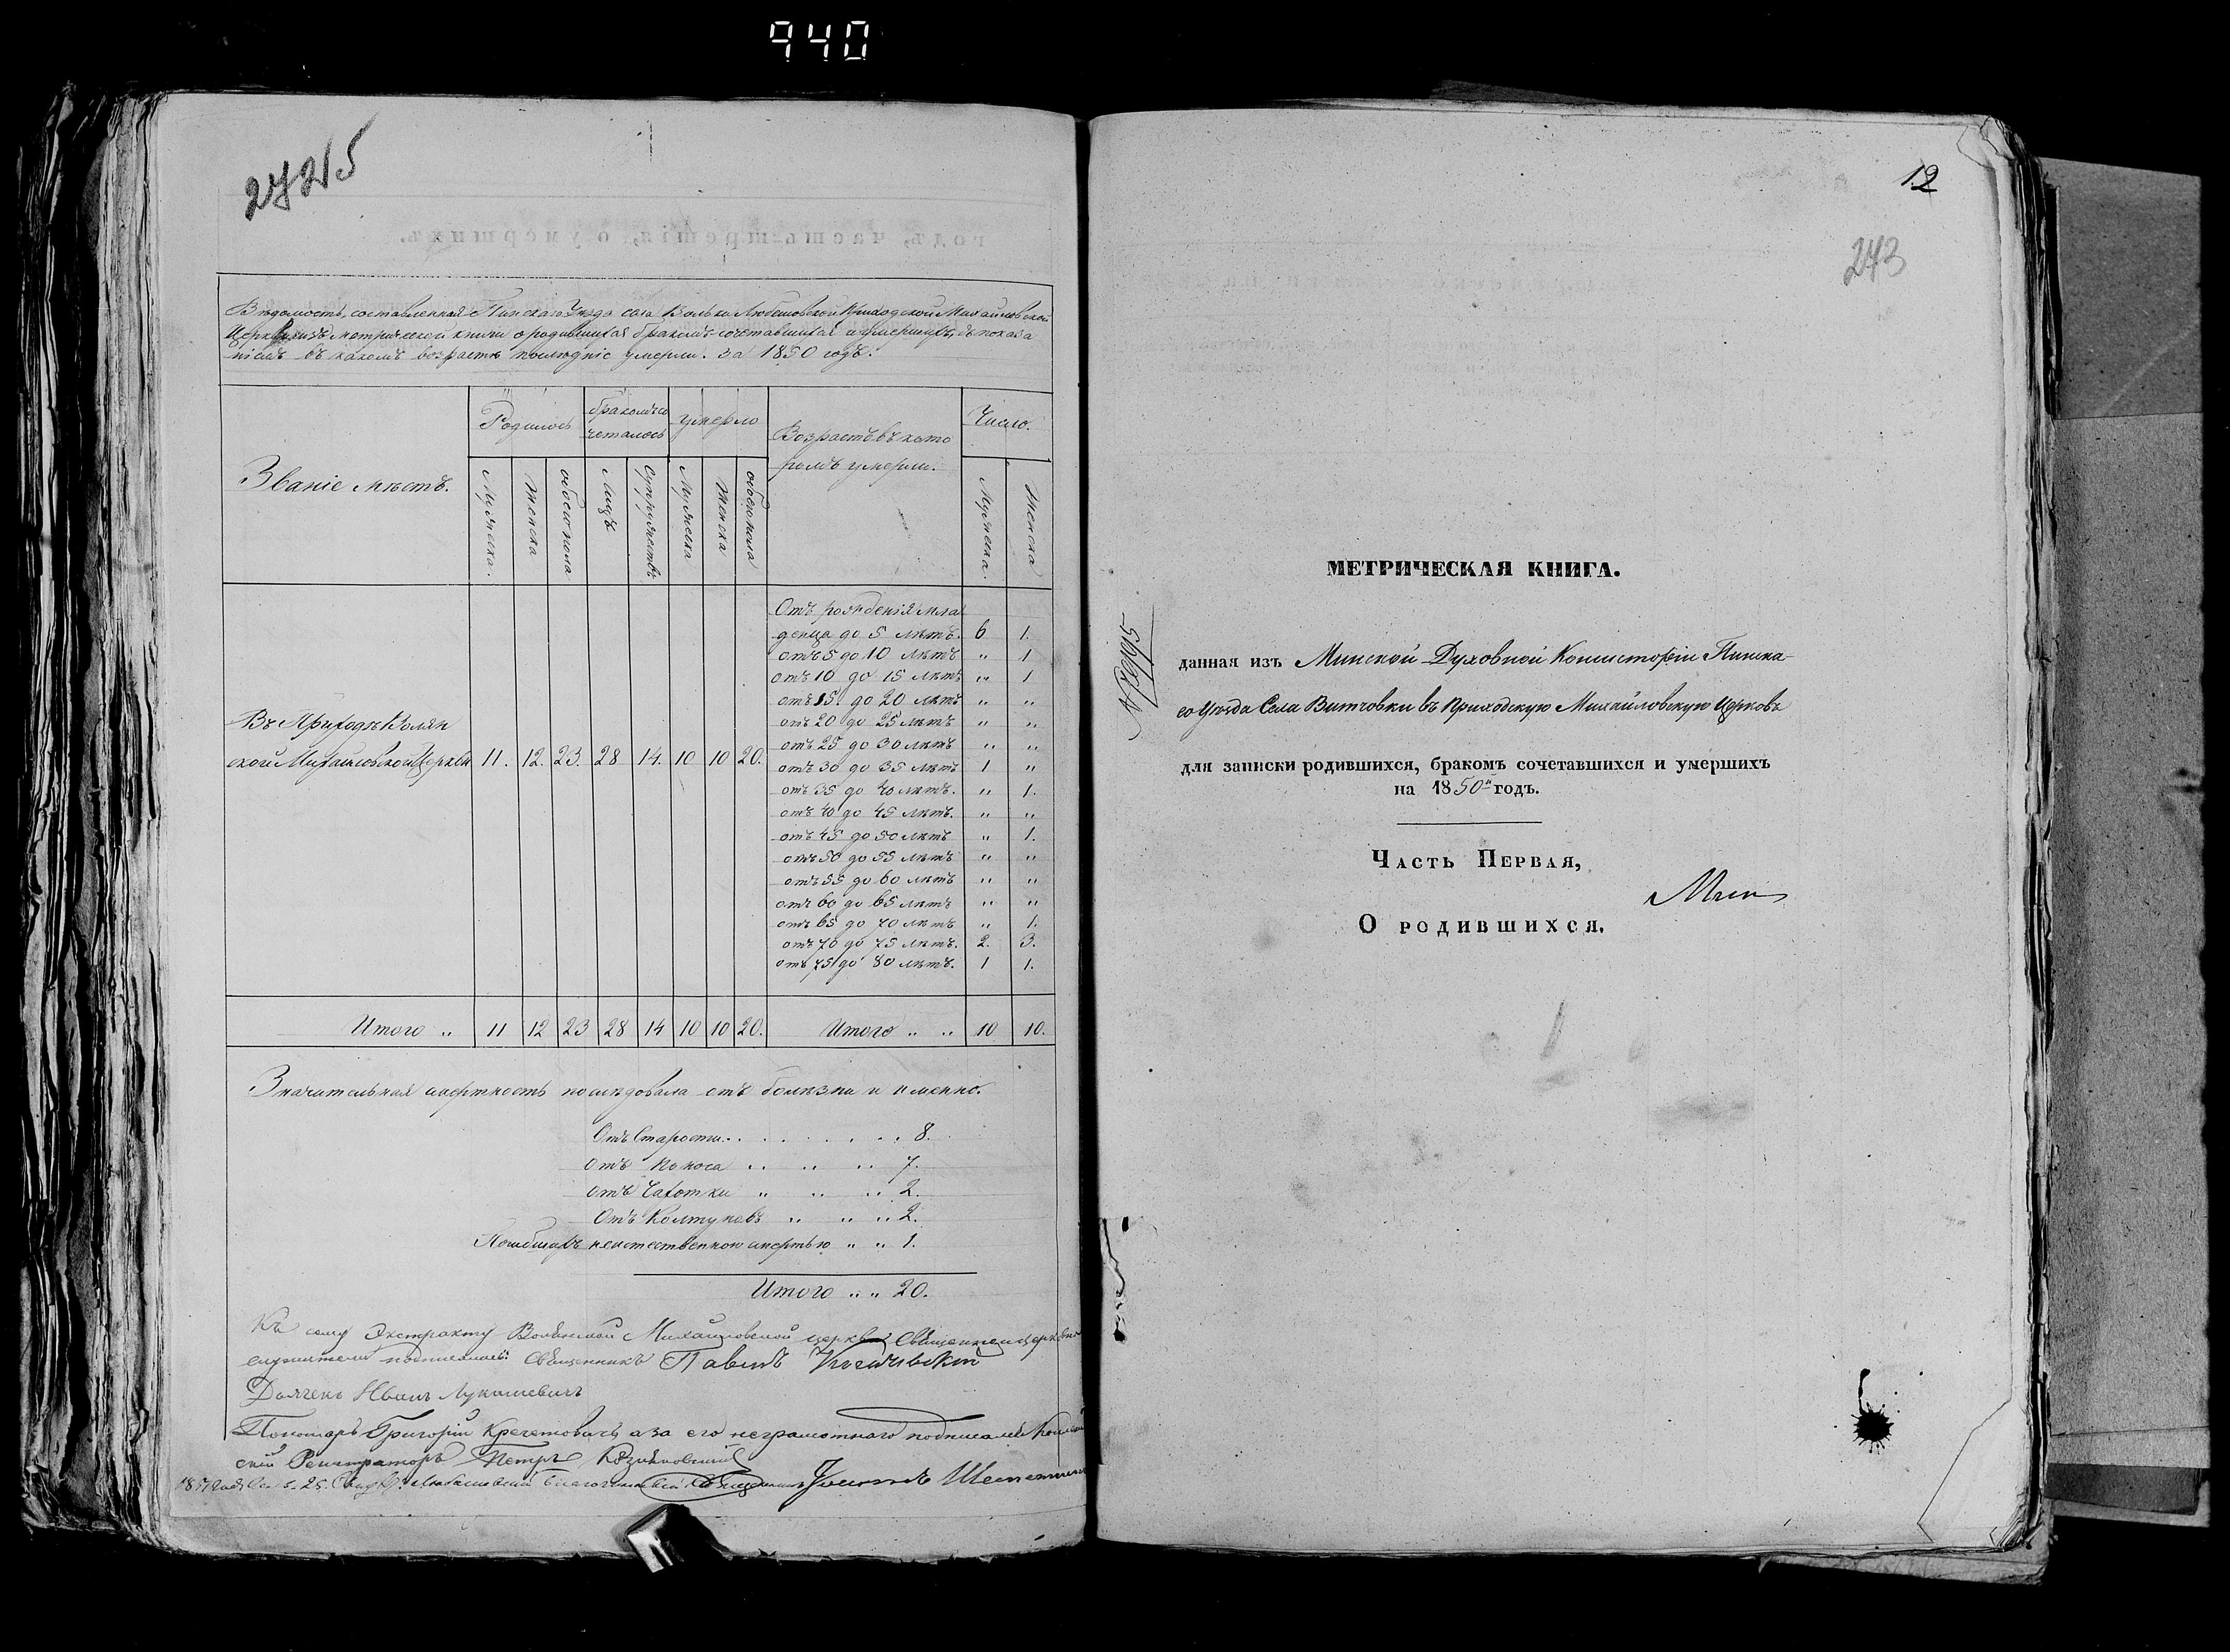 940
27215
Вѣдомость, составленная Пинскаго Уѣзда села Вольки Любешовской Приходской Михайловской
Церкви изъ метрической книги о родившихся бракомъ сочетавшихся и умершихъ, съ показа
ніемъ въ какомъ возрастѣ послѣдніе умерли. За 1850 годъ.
Званіе мѣстъ.
Родилось
бракомъ со
четалось
умерло
Возрастъ въ кото
ромъ умерли.
Число.
Мужеска.
Женска
обоего пола
Лицъ
Супружествъ
Мужеска
Женска
обоего пола
Мужеска.
Женска
Отъ рожденія мла
денца до 5 лѣтъ. 6 1.
отъ 5 до 10 лѣтъ " 1
отъ 10 до 15 лѣтъ " 1
отъ 15 до 20 лѣтъ " "
отъ 20 до 25 лѣтъ " "
отъ 25 до 30 лѣтъ " "
отъ 30 до 35 лѣтъ 1 "
отъ 35 до 40 лѣтъ. " 1.
отъ 40 до 45 лѣтъ. " "
отъ 45 до 50 лѣтъ " 1.
отъ 50 до 55 лѣтъ " "
отъ 55 до 60 лѣтъ " "
отъ 60 до 65 лѣтъ " "
отъ 65 до 70 лѣтъ " 1.
отъ 70 до 75 лѣтъ. 2. 3.
отъ 75 до 80 лѣтъ. 1 1.
Въ Приходѣ Волян
ской Михайловской Церкви 11. 12. 23. 28 14. 10 10 20.
Итого " 11 12 23 28 14 10 10 20. Итого " " 10 10.
Значительная смертность послѣдовала отъ болѣзни и именно.
Отъ Старости 8.
Отъ Поноса " " " 7.
Отъ Чахотки " " " 2.
Отъ Колтуновъ " " " 2.
неестественною смертью " " 1.
Итого " " 20.
Къ сему Экстракту Михайловской церкви Священно и церковно
служители подписались: Священникъ Павелъ
Дьячекъ Иванъ Лукашевичъ
Пономарь Григорій а за его неграмотнаго подписался
скій Регистраторъ Петръ
12
243
№ 27215
МЕТРИЧЕСКАЯ КНИГА.
данная изъ Минской Духовной Консисторіи Пинска
го Уѣзда Села Витчовки въ Приходскую Михайловскую Церковь
для записки родившихся, бракомъ сочетавшихся и умершихъ
на 1850й годъ.
Часть Первая,
О родившихся.